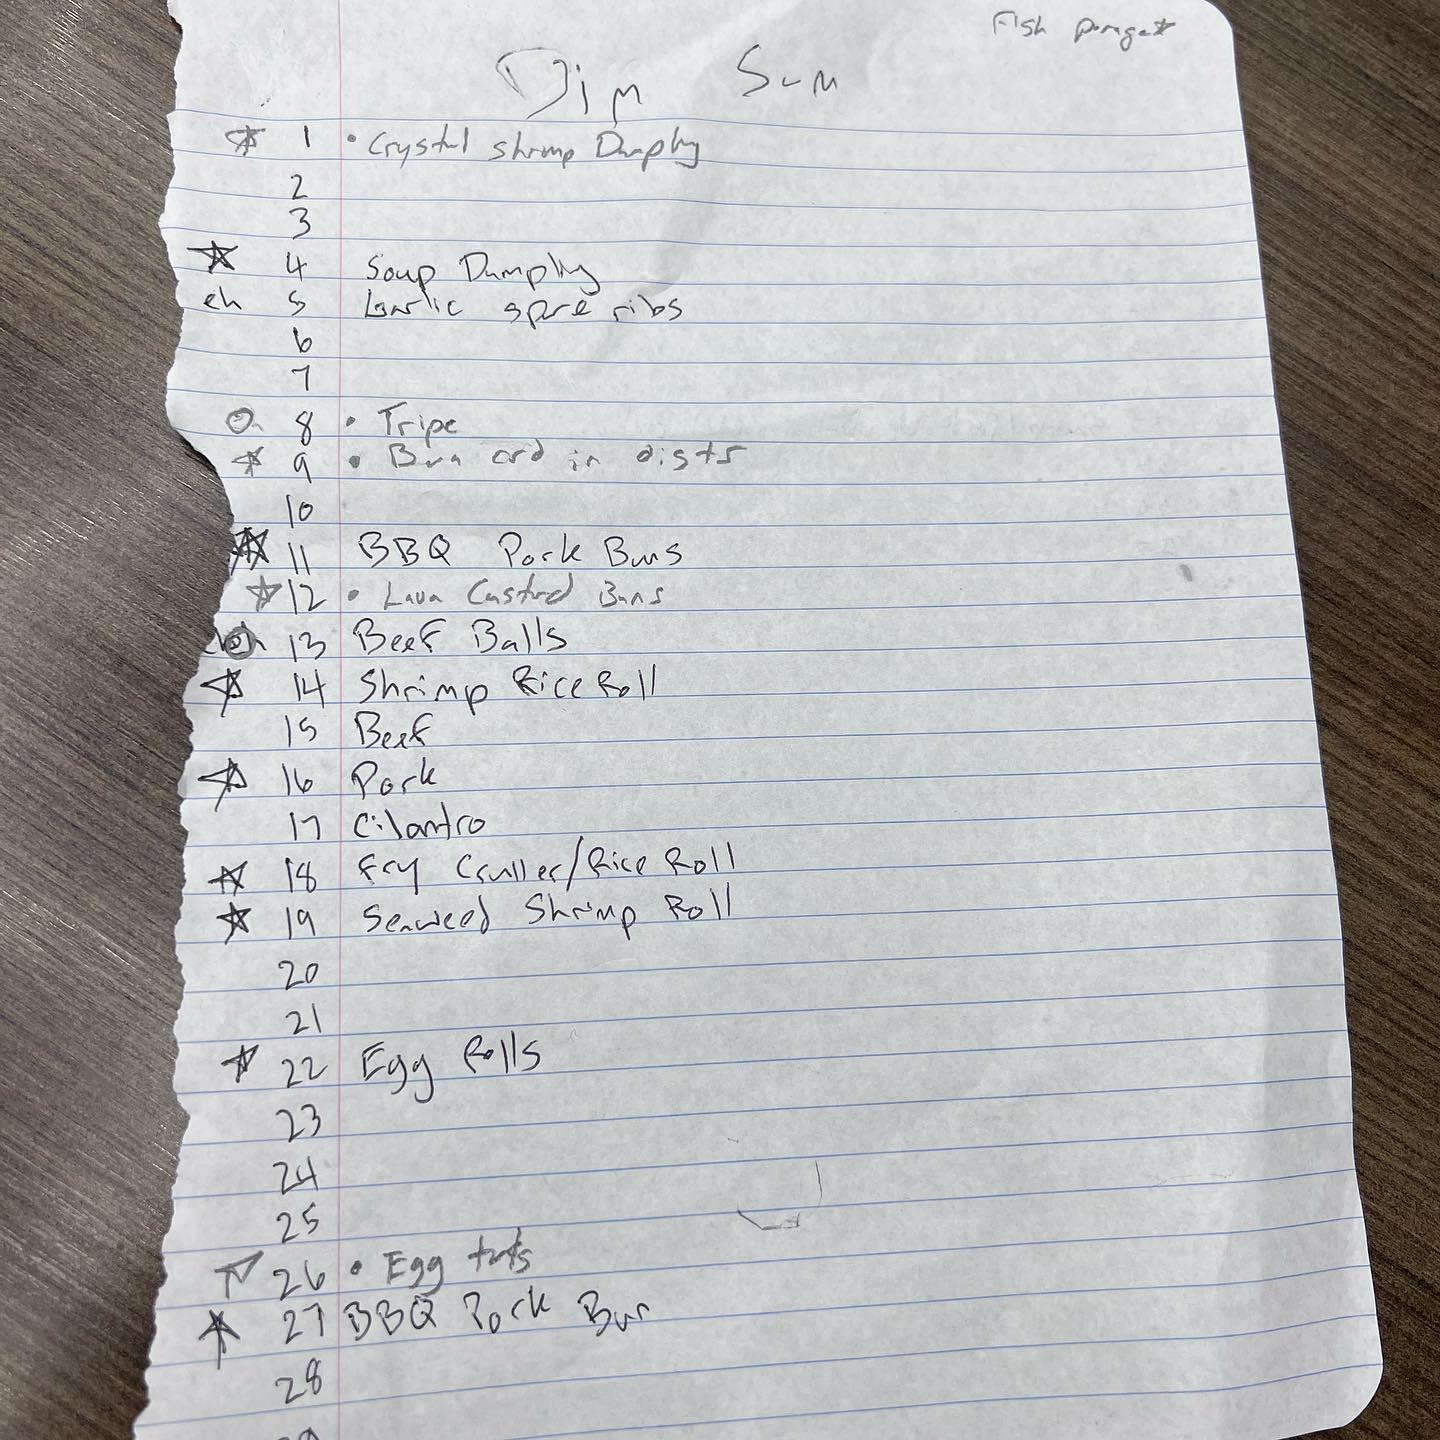 Fish
Dim Sum
1 • Crystal shrimp Dumpling
2
3
4 Soup Dumpling
eh 5 Garlic spare ribs
6
7
8 • Tripe
9 • in
10
11 BBQ Pork Buns
12 • Lava Custard Buns
13 Beef Balls
14 Shrimp Rice Roll
15 Beef
16 Pork
17 Cilantro
18 Fry Cruller/Rice Roll
19 Seaweed Shrimp Roll
20
21
22 Egg Rolls
23
24
25
26 • Egg tarts
27 BBQ Pork Bun
28